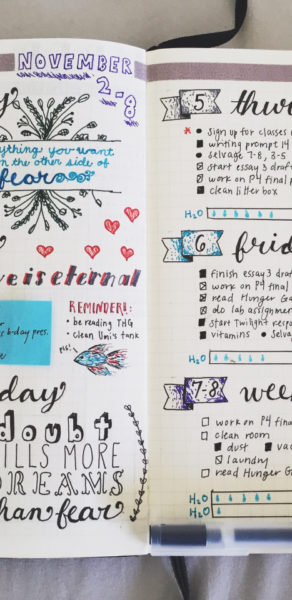 NOVEMBER
2-8
everything you want
on the other side of
fear
love is eternal
REMINDER!:
• be reading THG
• clean Umi's tank
b-day pres.
pls!
doubt
KILLS MORE
DREAMS
than fear
5
sign up for classes
writing prompt 14
selvage 7-8, 3-5
start essay 3 draft
work on P4 final
clean litter box
H₂O
6
finish essay 3
work on P4 final
read Hunger
do lab assignment
start Twilight
vitamins •
H₂O
7-8
work on P4 final
clean room
dust
laundry
read Hunger
H₂O
H₂O